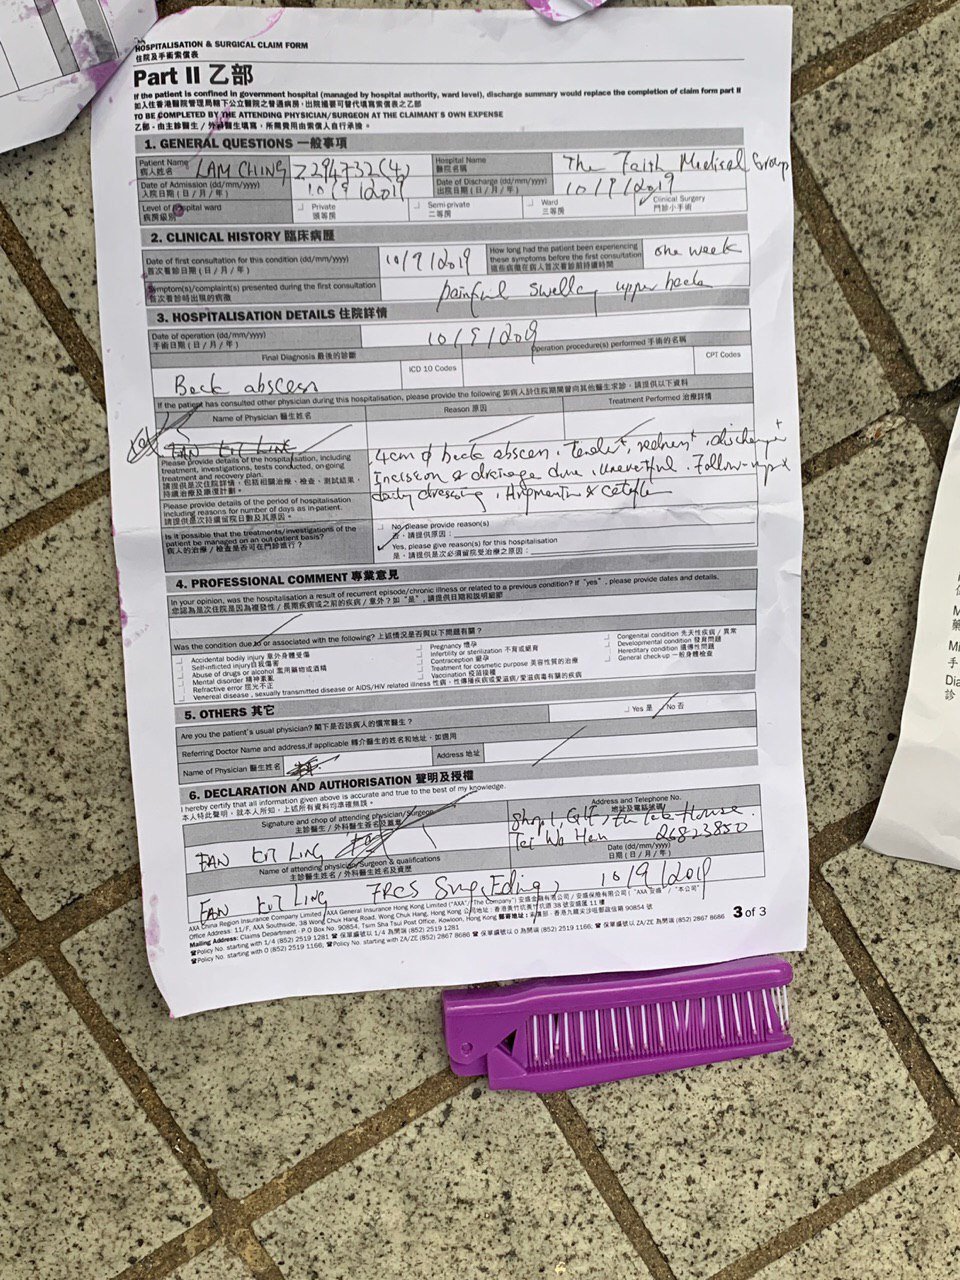 HOSPITALISATION & SURGICAL CLAIM FORM
住院及手術索償表
Part II 乙部
If the patient is confined in government hospital (managed by hospital authority, ward level), discharge summary would replace the completion of claim form part II
如入住香港醫院管理局轄下公立醫院之普通病房，出院撮要可替代填寫索償表之乙部
TO BE COMPLETED BY THE ATTENDING PHYSICIAN/SURGEON AT THE CLAIMANT'S OWN EXPENSE
乙部，由主診醫生/外科醫生填寫，所需費用由索償人自行承擔。
1. GENERAL QUESTIONS 一般事項
Patient Name LAM CHING Z294732(4) Hospital Name The Faith Medical Group
病人姓名 醫院名稱
Date of Admission (dd/mm/yyyy) 10/9/2019 Date of Discharge (dd/mm/yyyy) 10/9/2019
入院日期(日/月/年) 出院日期(日/月/年)
Level of hospital ward Private Semi-private Ward Clinical Surgery
病房級別 頭等房 二等房 三等房 門診小手術
2. CLINICAL HISTORY 臨床病歷
Date of first consultation for this condition (dd/mm/yyyy) 10/9/2019 How long had the patient been experiencing these symptoms before the first consultation one week
首次看診日期(日/月/年) 這些病徵在病人首次看診前持續時間
Symptom(s)/complaint(s) presented during the first consultation painful swelling upper back
首次看診時出現的病徵
3. HOSPITALISATION DETAILS 住院詳情
Date of operation (dd/mm/yyyy) 10/9/2019
手術日期(日/月/年)
Final Diagnosis 最後的診斷 ICD 10 Codes Operation procedure(s) performed 手術的名稱 CPT Codes
Back abscess
If the patient has consulted other physician during this hospitalisation, please provide the following 如病人於住院期間曾向其他醫生求診，請提供以下資料
Name of Physician 醫生姓名 Reason 原因 Treatment Performed 治療詳情
FAN KIT LING
Please provide details of the hospitalisation, including treatment, investigations, tests conducted, on-going treatment and recovery plan.
請提供是次住院詳情，包括相關治療、檢查、測試結果、持續治療及康復計劃。
4cm φ back abscess, tender+, redness+, discharge+
Incision & drainage done, uneventful. Follow-up &
daily dressing, Augmentin &
Please provide details of the period of hospitalisation including reasons for number of days as in-patient.
請提供是次持續留院日數及其原因。
Is it possible that the treatments/investigations of the patient be managed on an out-patient basis?
病人的治療/檢查是否可在門診進行？
No, please provide reason(s)
否，請提供原因：
Yes, please give reason(s) for this hospitalisation
是，請提供是次必須留院受治療之原因：
4. PROFESSIONAL COMMENT 專業意見
In your opinion, was the hospitalisation a result of recurrent episode/chronic illness or related to a previous condition? If "yes", please provide dates and details.
您認為是次住院是因為復發性/長期疾病或之前的疾病/意外？如"是"，請提供日期和說明細節
Was the condition due to or associated with the following? 上述情況是否與以下問題有關？
Accidental bodily injury 意外身體受傷 Pregnancy 懷孕 Congenital condition 先天性疾病/異常
Self-inflicted injury 自我傷害 Infertility or sterilization 不育或絕育 Developmental condition 發育問題
Abuse of drugs or alcohol 濫用藥物或酒精 Contraception 避孕 Hereditary condition 遺傳性問題
Mental disorder 精神紊亂 Treatment for cosmetic purpose 美容性質的治療 General check-up 一般身體檢查
Refractive error 屈光不正 Vaccination 疫苗接種
Venereal disease, sexually transmitted disease or AIDS/HIV related illness 性病，性傳播疾病或愛滋病/愛滋病毒有關的疾病
5. OTHERS 其它
Are you the patient's usual physician? 閣下是否該病人的慣常醫生？ Yes 是 No 否
Referring Doctor Name and address, if applicable 轉介醫生的姓名和地址，如適用
Name of Physician 醫生姓名 Address 地址
6. DECLARATION AND AUTHORISATION 聲明及授權
I hereby certify that all information given above is accurate and true to the best of my knowledge.
本人特此聲明，就本人所知，上述所有資料均準確無誤。
Signature and chop of attending physician/Surgeon Address and Telephone No.
主診醫生/外科醫生簽名及蓋章 地址及電話號碼
FAN KIT LING Shop 1, G/F, Fu Tak House
Tai Wo Hau 26823850
Name of attending physician/Surgeon & qualifications Date (dd/mm/yyyy)
主診醫生姓名/外科醫生姓名及資歷 日期(日/月/年)
FAN KIT LING FRCS Surg (Eding) 10/9/2019
AXA China Region Insurance Company Limited / AXA General Insurance Hong Kong Limited ("AXA"/"The Company") 安盛金融有限公司/安盛保險有限公司("AXA 安盛"/"本公司")
Office Address: 11/F, AXA Southside, 38 Wong Chuk Hang Road, Wong Chuk Hang, Hong Kong 公司地址：香港黃竹坑黃竹坑道 38 號安盛匯 11 樓
Mailing Address: Claims Department - P.O Box No. 90854, Tsim Sha Tsui Post Office, Kowloon, Hong Kong 郵寄地址：香港九龍尖沙咀郵政信箱 90854 號
☎Policy No. starting with 1/4 (852) 2519 1281 ☎ 保單編號以 1/4 為開端 (852) 2519 1281
☎Policy No. starting with 0 (852) 2519 1166; ☎Policy No. starting with ZA/ZE (852) 2867 8686 ☎ 保單編號以 0 為開端 (852) 2519 1166; ☎ 保單編號以 ZA/ZE 為開端 (852) 2867 8686
3 of 3